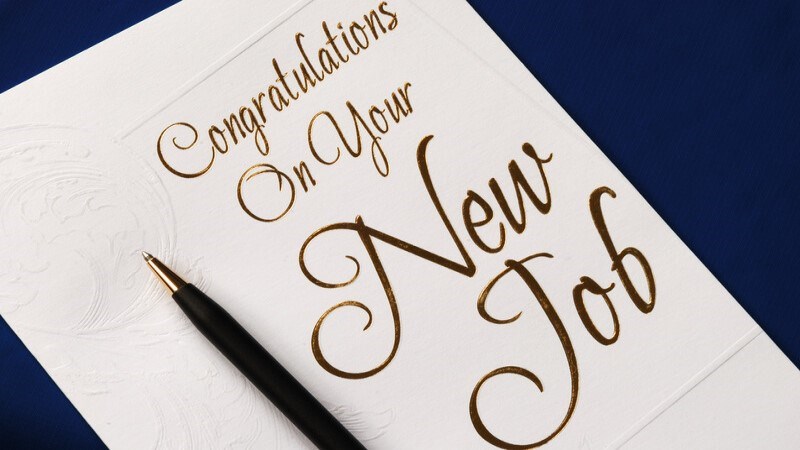 Congratulations
On Your
New
Job